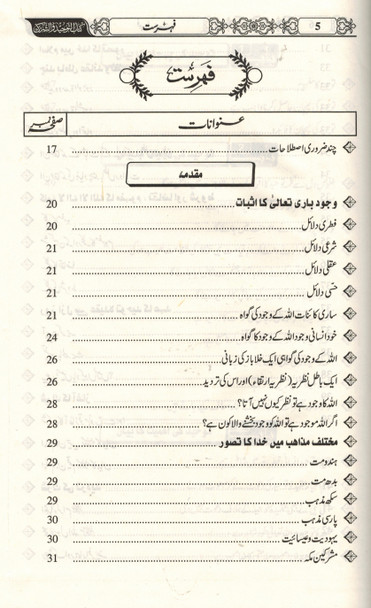 5
فہرست
کتاب التوحید والشرک
فہرست
عنوانات
صفحہ نمبر
چند ضروری اصطلاحات 17
مقدمہ
وجود باری تعالیٰ کا اثبات 20
فطری دلائل 20
شرعی دلائل 21
عقلی دلائل 21
حسی دلائل 21
ساری کائنات اللہ کے وجود کی گواہ 21
خود انسانی وجود اللہ کے وجود کا گواہ 24
اللہ کے وجود کی گواہی ایک خلا باز کی زبانی 26
ایک باطل نظریہ (نظریہ ارتقاء) اور اس کی تردید 26
اللہ کا وجود ہے تو نظر کیوں نہیں آتا؟ 28
اگر اللہ موجود ہے تو اللہ کو وجود بخشنے والا کون ہے؟ 28
مختلف مذاہب میں خدا کا تصور 29
ہندومت 29
بدھ مت 29
سکھ مذہب 29
پارسی مذہب 30
یہودیت و عیسائیت 30
مشرکین مکہ 31